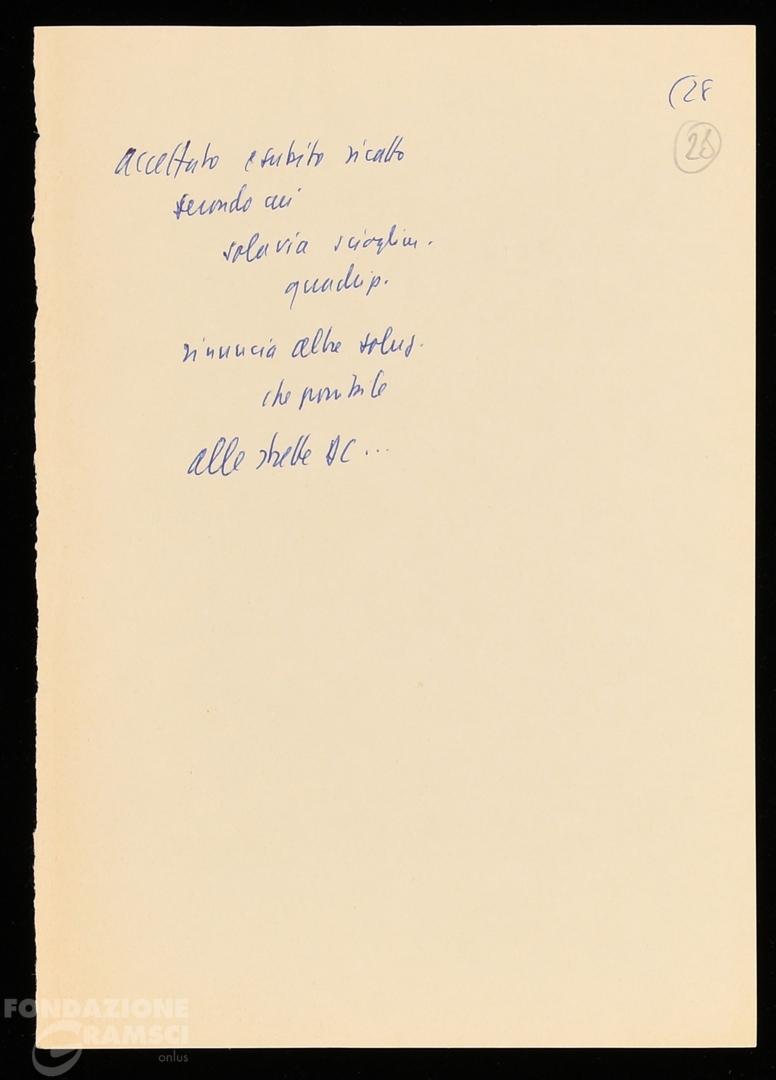 (28
28
accettato e subito ricatto
secondo cui
sola via scioglim.
quadrip.
rinuncia altre soluz.
che possibile
alle strette DC...
FONDAZIONE
GRAMSCI
onlus